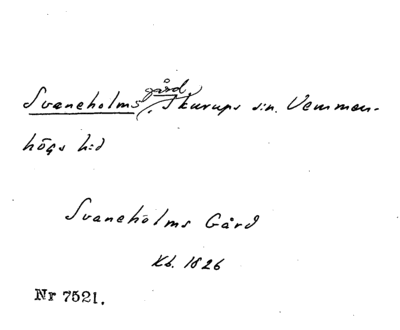 gård
Svaneholms, Skurups s:n. Vemmen-
högs h:d
Svaneholms Gård
Kb. 1826
Nr 7521.